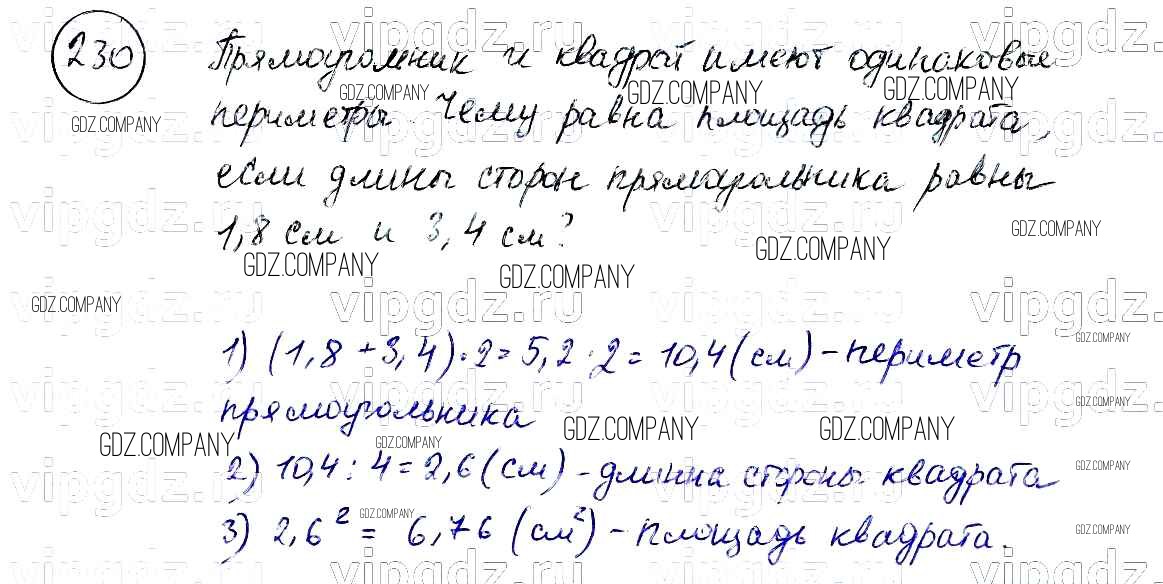 230 Прямоугольник и квадрат имеют одинаковые
периметры. Чему равна площадь квадрата,
если длины сторон прямоугольника равны
1,8 см и 3,4 см?
1) (1,8 + 3,4)·2 = 5,2·2 = 10,4 (см) – периметр
прямоугольника
2) 10,4 : 4 = 2,6 (см) – длинна стороны квадрата
3) 2,6² = 6,76 (см²) – площадь квадрата.
vipgdz.ru
GDZ.COMPANY